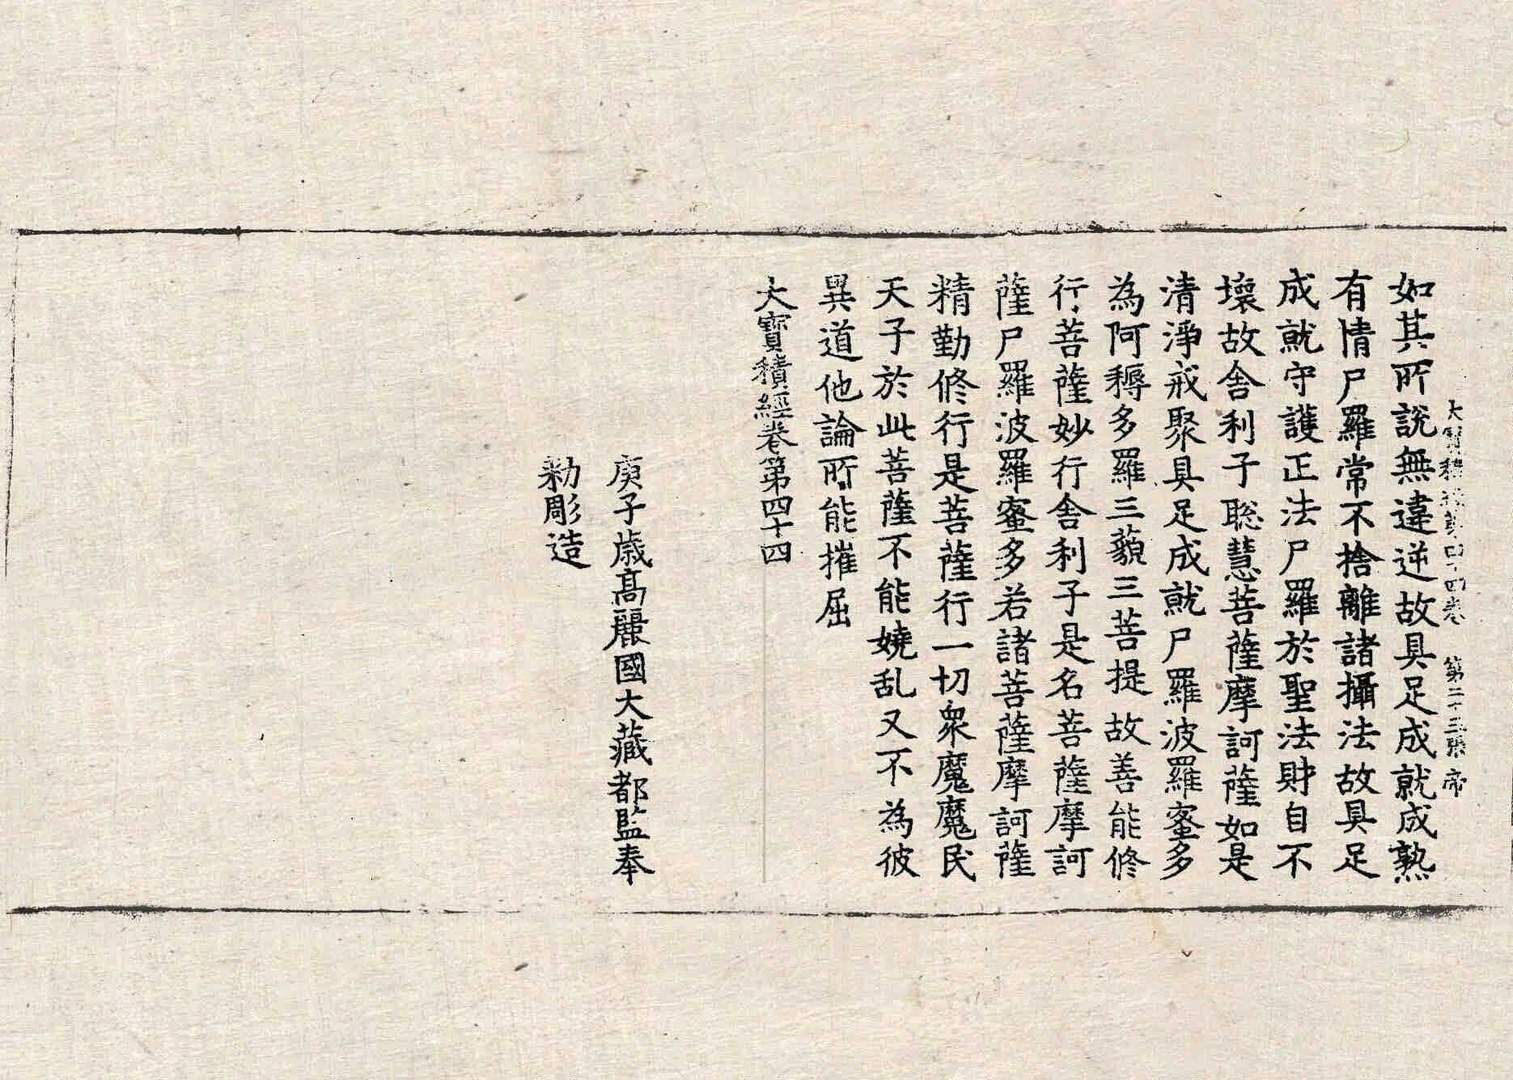 大寶積經第四十四卷 第二十三張 帝
如其所說無違逆故具足成就成熟
有情尸羅常不捨離諸攝法故具足
成就守護正法尸羅於聖法財自不
壞故舍利子聡慧菩薩摩訶薩如是
清淨戒聚具足成就尸羅波羅蜜多
為阿耨多羅三藐三菩提故善能修
行菩薩妙行舍利子是名菩薩摩訶
薩尸羅波羅蜜多若諸菩薩摩訶薩
精勤修行是菩薩行一切衆魔魔民
天子於此菩薩不能嬈乱又不為彼
異道他論所能摧屈
大寶積經卷第四十四
庚子歲高麗國大藏都監奉
勑彫造